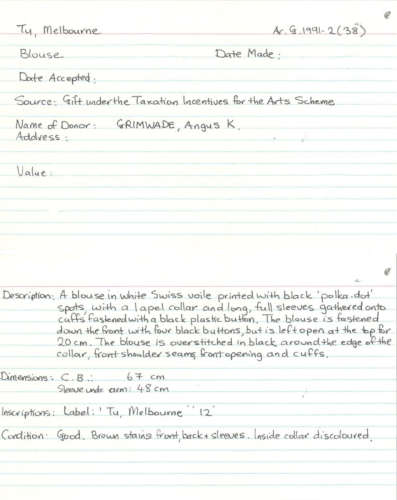 Tu, Melbourne Ar. G. 1991-2 (38)
Blouse Date Made:
Date Accepted:
Source: Gift under the Taxation Incentives for the Arts Scheme
Name of Donor: GRIMWADE, Angus K.
Address:
Value:
Description: A blouse in white Swiss voile printed with black 'polka-dot'
spots, with a lapel collar and long, full sleeves gathered onto
cuffs fastened with a black plastic button. The blouse is fastened
down the front with four black buttons, but is left open at the top for
20 cm. The blouse is overstitched in black around the edge of the
collar, front shoulder seams, front opening and cuffs.
Dimensions: C.B.: 67 cm
Sleeve unde arm: 48 cm
Inscriptions: Label: 'Tu, Melbourne' '12'
Condition: Good. Brown stains front, back + sleeves. Inside collar discoloured.